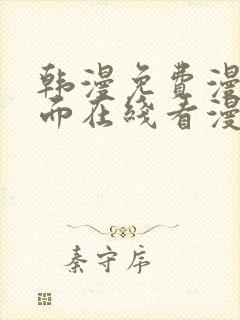 韩漫免费漫
而在线看漫
秦守序